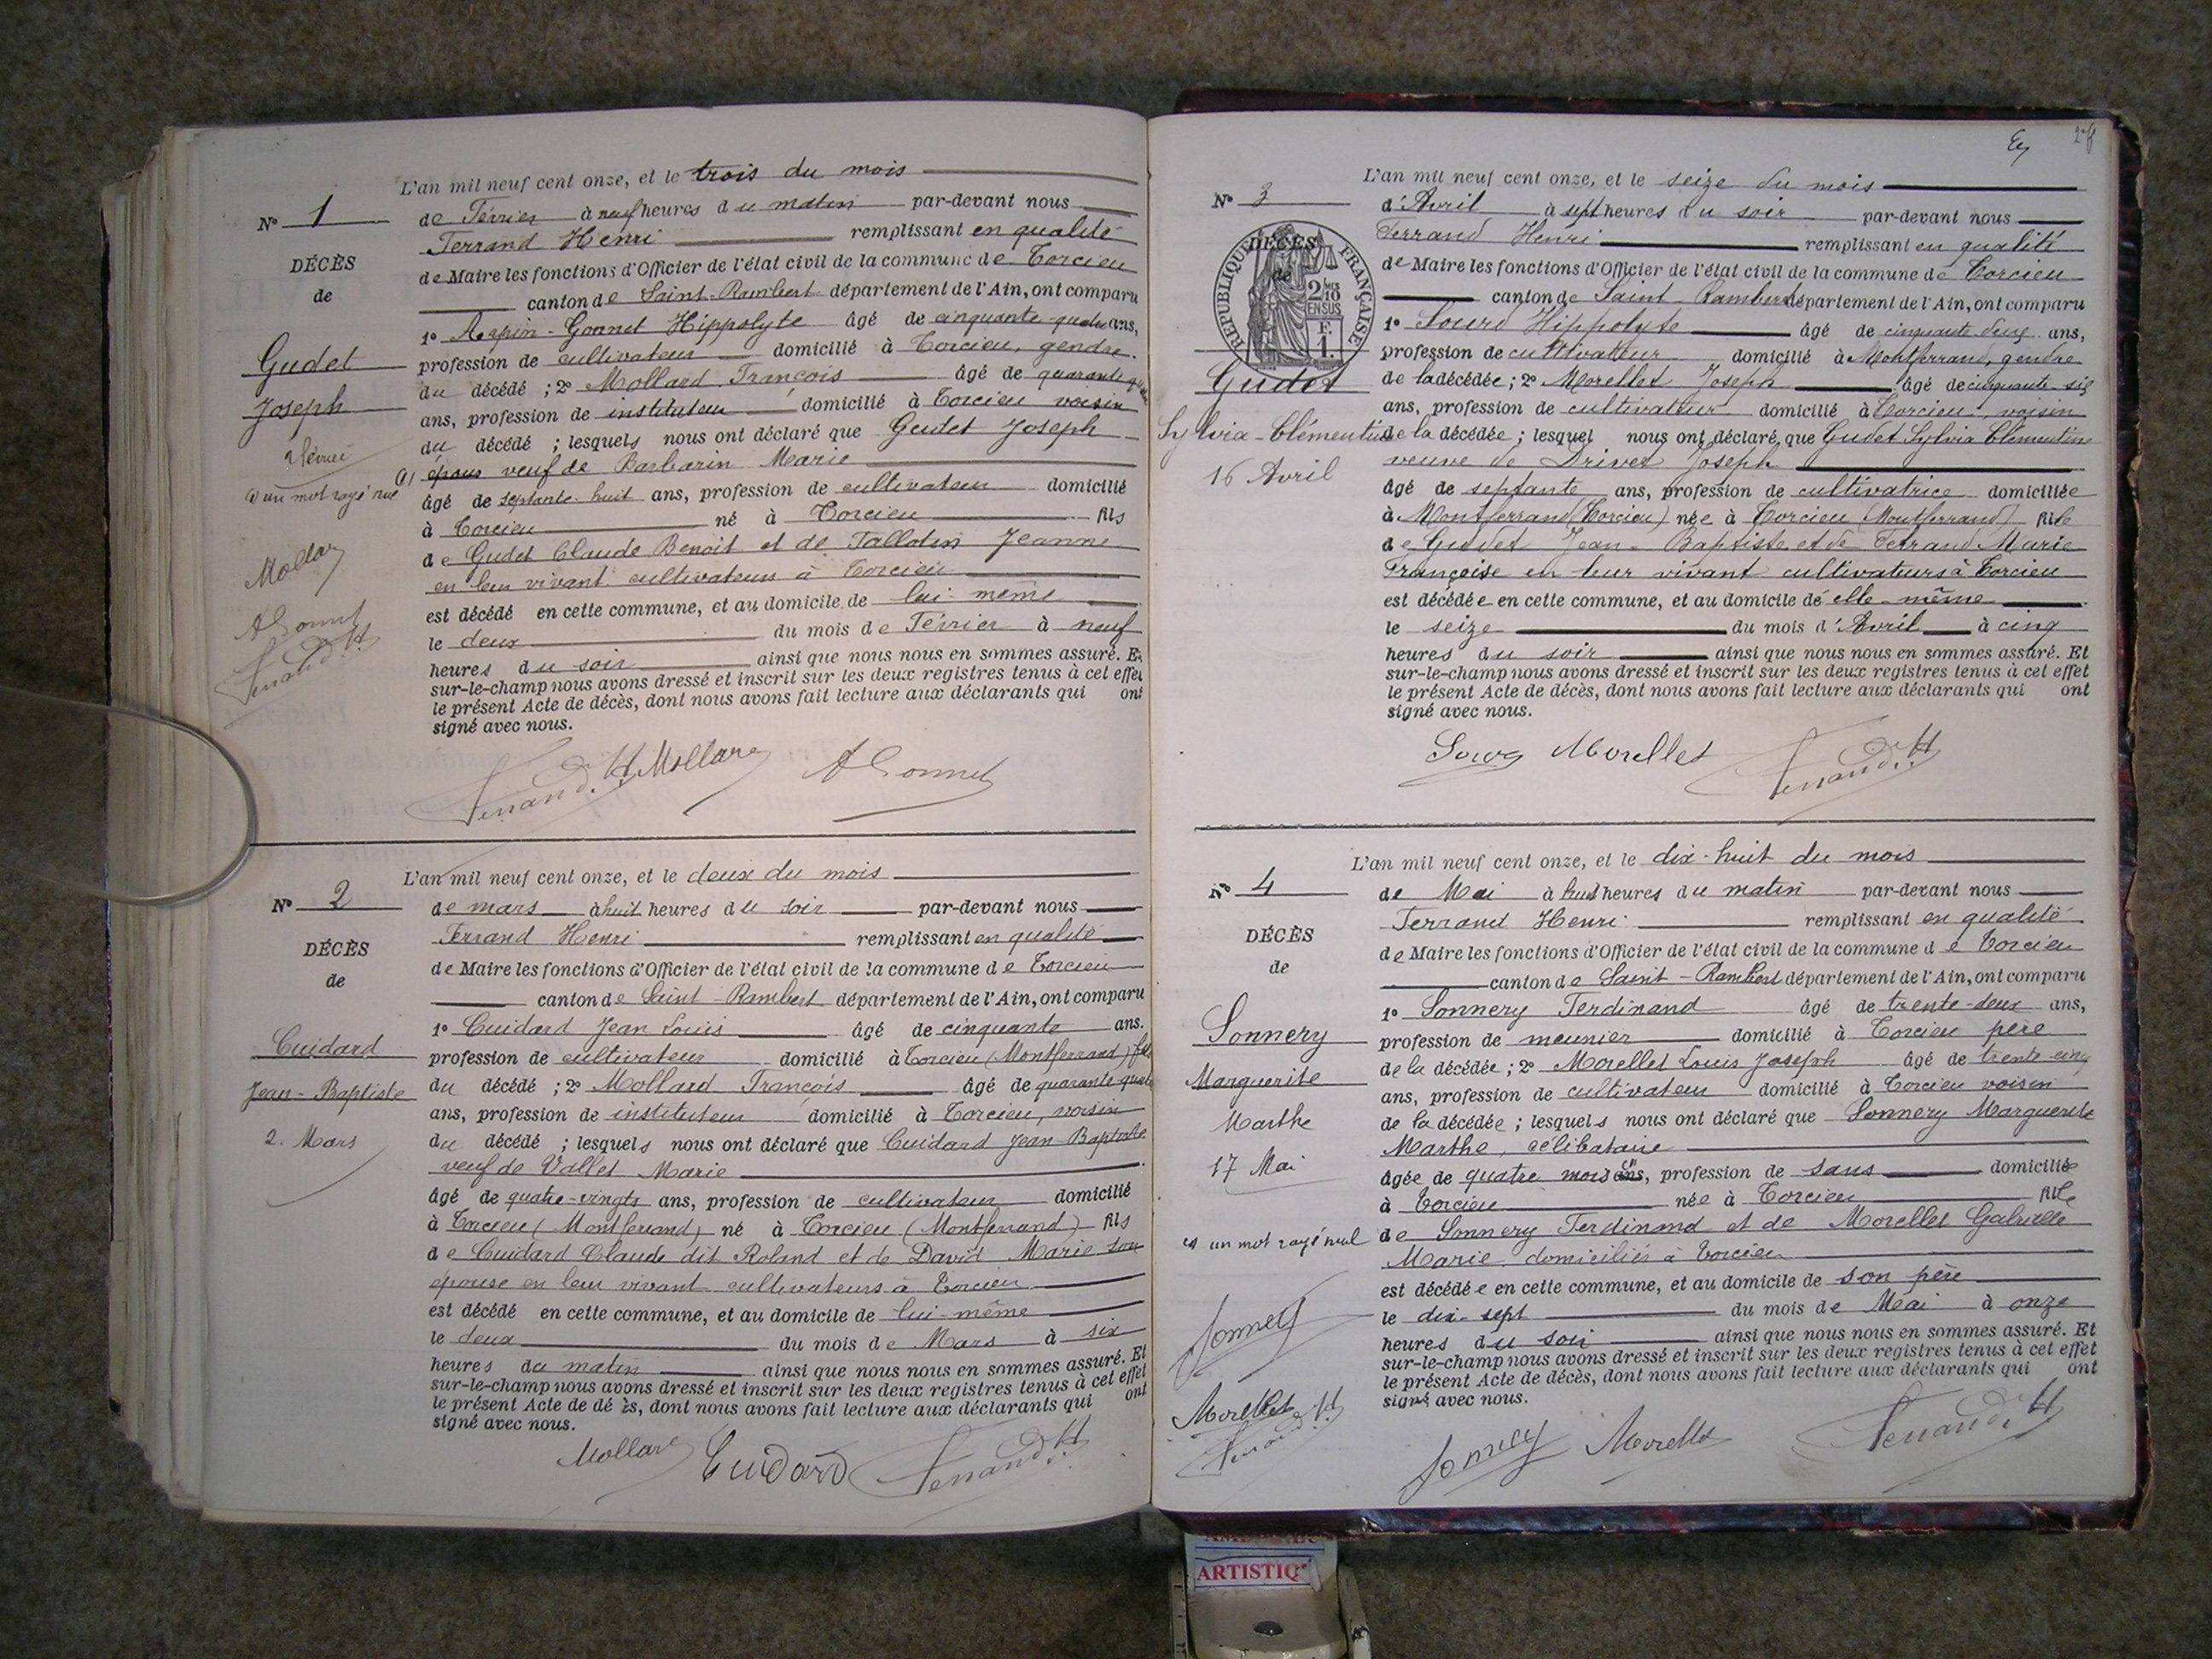 L'an mil neuf cent onze, et le trois du mois
N° 1
de Février à neuf heures du matin par-devant nous
Ferrand Henri remplissant en qualité
DÉCÈS
de Maire les fonctions d'Officier de l'état civil de la commune de Torcieu
de
canton de Saint-Rambert département de l'Ain, ont comparu
1° Arpin-Gonnet Hippolyte âgé de cinquante-quatre ans,
Gudet
profession de cultivateur domicilié à Torcieu, gendre
Joseph
du décédé ; 2° Mollard François âgé de quarante quatre
ans, profession de instituteur domicilié à Torcieu voisin
du décédé ; lesquels nous ont déclaré que Gudet Joseph
2 Février
(1) époux veuf de Barbarin Marie
(1) un mot rayé nul
âgé de septante-huit ans, profession de cultivateur domicilié
à Torcieu né à Torcieu fils
de Gudet Claude Benoit et de Tallotin Jeanne
Mollard
en leur vivant cultivateurs à Torcieu
est décédé en cette commune, et au domicile de lui-même
A Gonnet
le deux du mois de Février à neuf
Ferrand. H
heures du soir ainsi que nous nous en sommes assuré. Et
sur-le-champ nous avons dressé et inscrit sur les deux registres tenus à cet effet
le présent Acte de décès, dont nous avons fait lecture aux déclarants qui ont
signé avec nous.
Ferrand. H Mollard A Gonnet
L'an mil neuf cent onze, et le deux du mois
N° 2
de mars à huit heures du soir par-devant nous
Ferrand Henri remplissant en qualité
DÉCÈS
de Maire les fonctions d'Officier de l'état civil de la commune de Torcieu
de
canton de Saint-Rambert département de l'Ain, ont comparu
1° Cuidard Jean Louis âgé de cinquante ans.
Cuidard
profession de cultivateur domicilié à Torcieu (Montferrand) fils
Jean-Baptiste
du décédé ; 2° Mollard François âgé de quarante quatre
ans, profession de instituteur domicilié à Torcieu, voisin
2. Mars
du décédé ; lesquels nous ont déclaré que Cuidard Jean-Baptiste
veuf de Vallet Marie
âgé de quatre-vingts ans, profession de cultivateur domicilié
à Torcieu (Montferrand) né à Torcieu (Montferrand) fils
de Cuidard Claude dit Roland et de David Marie son
épouse en leur vivant cultivateurs à Torcieu
est décédé en cette commune, et au domicile de lui-même
le deux du mois de Mars à six
heures du matin ainsi que nous nous en sommes assuré. Et
sur-le-champ nous avons dressé et inscrit sur les deux registres tenus à cet effet
le présent Acte de dé ès, dont nous avons fait lecture aux déclarants qui ont
signé avec nous.
Mollard Cuidard Ferrand. H
L'an mil neuf cent onze, et le seize du mois
N° 3
d'Avril à sept heures du soir par-devant nous
Ferrand Henri remplissant en qualité
DÉCÈS
de
RÉPUBLIQUE FRANÇAISE
2/10 EN SUS
F. 1.
de Maire les fonctions d'Officier de l'état civil de la commune de Torcieu
canton de Saint-Rambert département de l'Ain, ont comparu
1° Sourd Hippolyte âgé de cinquante deux ans,
profession de cultivateur domicilié à Montferrand, gendre
Gudet
de la décédée ; 2° Morellet Joseph âgé de cinquante-six
ans, profession de cultivateur domicilié à Torcieu, voisin
Sylvia-Clémentine
de la décédée ; lesquel nous ont déclaré que Gudet Sylvia Clémentine
16 Avril
veuve de Drivet Joseph
âgé de septante ans, profession de cultivatrice domiciliée
à Montferrand (Torcieu) née à Torcieu (Montferrand) fille
de Gudet Jean-Baptiste et de Ferrand Marie
Françoise en leur vivant cultivateurs à Torcieu
est décédée en cette commune, et au domicile de elle-même
le seize du mois d'Avril à cinq
heures du soir ainsi que nous nous en sommes assuré. Et
sur-le-champ nous avons dressé et inscrit sur les deux registres tenus à cet effet
le présent Acte de décès, dont nous avons fait lecture aux déclarants qui ont
signé avec nous.
Sourd Morellet Ferrand. H
L'an mil neuf cent onze, et le dix-huit du mois
N° 4
de Mai à huit heures du matin par-devant nous
Ferrand Henri remplissant en qualité
DÉCÈS
de Maire les fonctions d'Officier de l'état civil de la commune de Torcieu
de
canton de Saint-Rambert département de l'Ain, ont comparu
1° Sonnery Ferdinand âgé de trente-deux ans,
Sonnery
profession de meunier domicilié à Torcieu père
Marguerite
de la décédée ; 2° Morellet Louis Joseph âgé de trente-cinq
ans, profession de cultivateur domicilié à Torcieu voisin
Marthe
de la décédée ; lesquels nous ont déclaré que Sonnery Marguerite
Marthe, célibataire
17 Mai
âgée de quatre mois (1) ans, profession de sans domiciliée
à Torcieu née à Torcieu fille
(1) un mot rayé nul
de Sonnery Ferdinand et de Morellet Gabrielle
Marie domiciliés à Torcieu
est décédée en cette commune, et au domicile de son père
le dix-sept du mois de Mai à onze
Sonnery
heures du soir ainsi que nous nous en sommes assuré. Et
sur-le-champ nous avons dressé et inscrit sur les deux registres tenus à cet effet
le présent Acte de décès, dont nous avons fait lecture aux déclarants qui ont
Morellet
signé avec nous.
Ferrand. H
Sonnery Morellet Ferrand. H
ARTISTIQ